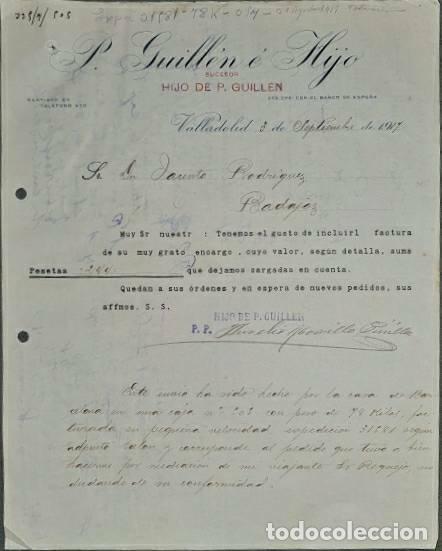 225/9/505
Expn 31581 - 78K -
P. Guillén é Hijo
SUCESOR
HIJO DE P. GUILLEN
SANTIAGO
TELÉFONO
CON EL BANCO DE ESPAÑA
Valladolid 3 de Septiembre de 1917
Sr Dn Jacinto Rodriguez
Badajoz
Muy Sr nuestr : Tenemos el gusto de incluirl factura
de su muy grato encargo, cuyo valor, según detalla, suma
Pesetas que dejamos cargadas en cuenta.
Quedan a sus órdenes y en espera de nuevos pedidos, sus
affmos. S. S.
HIJO DE P. GUILLEN
P. P.
Este envio ha sido hecho por la casa de Bar
celona en una caja nº 505 con peso de 78 Kilos, fac
turada en pequeña velocidad expedición 31581 segun
adjunto talón y corresponde al pedido que tuvo a bien
hacernos por mediación de mi viajante Sr
dudando de su conformidad.
todocoleccion.net